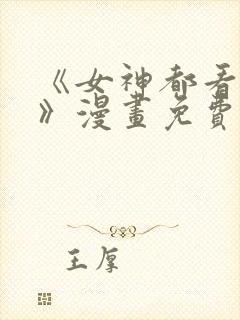 《女神都看
》漫畫免費
王厚